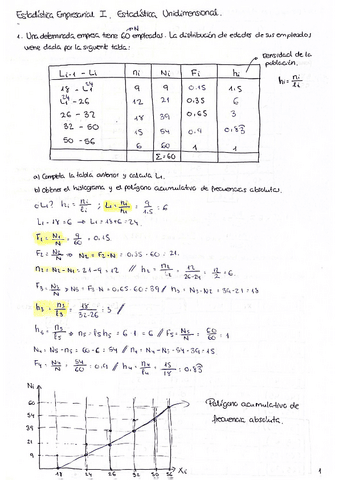 Estadística Empresarial I. Estadística Unidimensional.
n=N
1. Una determinada empresa tiene 60 empleados. La distribución de edades de sus empleados
viene dada por la siguiente tabla:
Densidad de la
población.
Li-1 - Li Ni Ni Fi hi
hi = ni/ai
18 - L1 24 9 9 0.15 1.5
L1 24 - 26 12 21 0.35 6
26 - 32 18 39 0.65 3
32 - 50 15 54 0.9 0.83
50 - 56 6 60 1 1
Σ=60
a) Completa la tabla anterior y calcula L1.
b) Obtener el histograma y el polígono acumulativo de frecuencias absolutas.
L1 = 18 + 6 → L1 = 18+6 = 24.
F1 = N1/N = 9/60 = 0.15.
F2 = N2/N → N2 = F2·N = 0.35·60 = 21.
n2 = N2 - N1 = 21 - 9 = 12 // h2 = 12/26-24 = 12/2 = 6.
18/32-26 = 3 //
F5 = N5/N = 60/60 = 1
N4 = N5 - n5 = 60 - 6 = 54 // n4 = N4 - N3 = 54 - 39 = 15
15/18 = 0.83
Ni
60
54
39
21
9
18 24 26 32 50 56 Xi
Polígono acumulativo de
frecuencia absoluta.
1